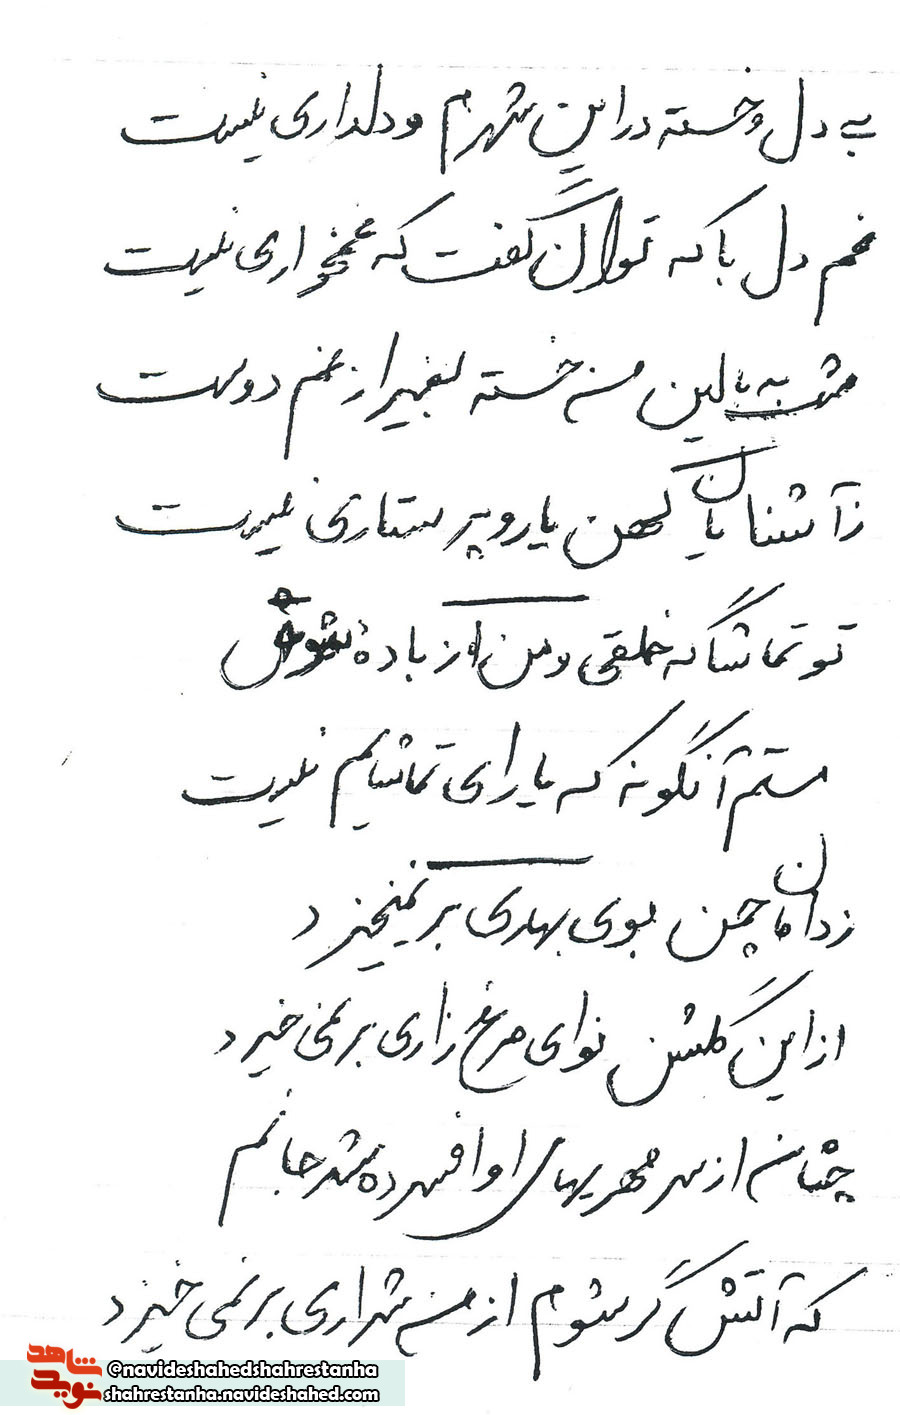 بی دل و خسته در این شهرم و دلداری نیست
غم دل با که توان گفت که غمخواری نیست
شب به بالین من خسته بغیر از غم دوست
ز آشنایان کهن یار و پرستاری نیست
تو تماشاگه خلقی و من از باده شوق
مستم آنگونه که یارای تماشایم نیست
ز دامان چمن بوی بهاری بر نمیخیزد
از این گلشن نوای مرغ زاری بر نمی خیزد
چنان از سرد مهریهای او افسرده شد جانم
که آتش گر شوم از من شراری بر نمی خیزد
شاهد
نوید
@navideshahedshahrestanha
shahrestanha.navideshahed.com